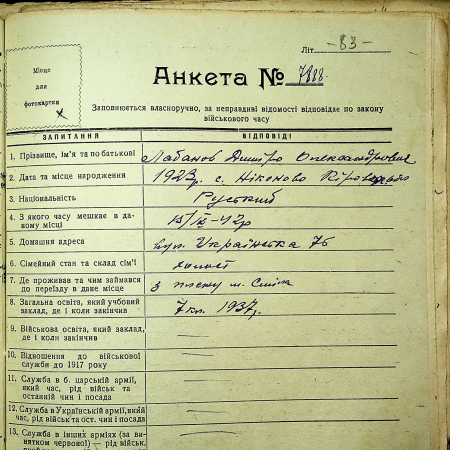 Літ. -83-
Місце
для
фотокартки
Анкета № 7988.
Заповнюється власноручно, за неправдиві відомості відповідає по закону
військового часу
ЗАПИТАННЯ ВІДПОВІДІ
1. Прізвище, ім'я та по батькові Лабанов Дмитро Олександрович
2. Дата та місце народження 1923р. с. Ніконово
3. Національність Руський
4. З якого часу мешкає в даному місці 15/IX-42р
5. Домашня адреса вул. Українська 76
6. Сімейний стан та склад сім'ї холост
7. Де проживав та чим займався
до переїзду в дане місце з плену м. Сміла
8. Загальна освіта, який учбовий
заклад, де і коли закінчив 7 кл. 1937р.
9. Військова освіта, який заклад,
де і коли закінчив
10. Відношення до військової
служби до 1917 року
11. Служба в б. царській армії,
який час, рід військ та
останній чин і посада
12. Служба в Українській армії, який
час, рід військ та ост. чин і посада
13. Служба в інших арміях (за ви-
нятком червоної) — рід військ,